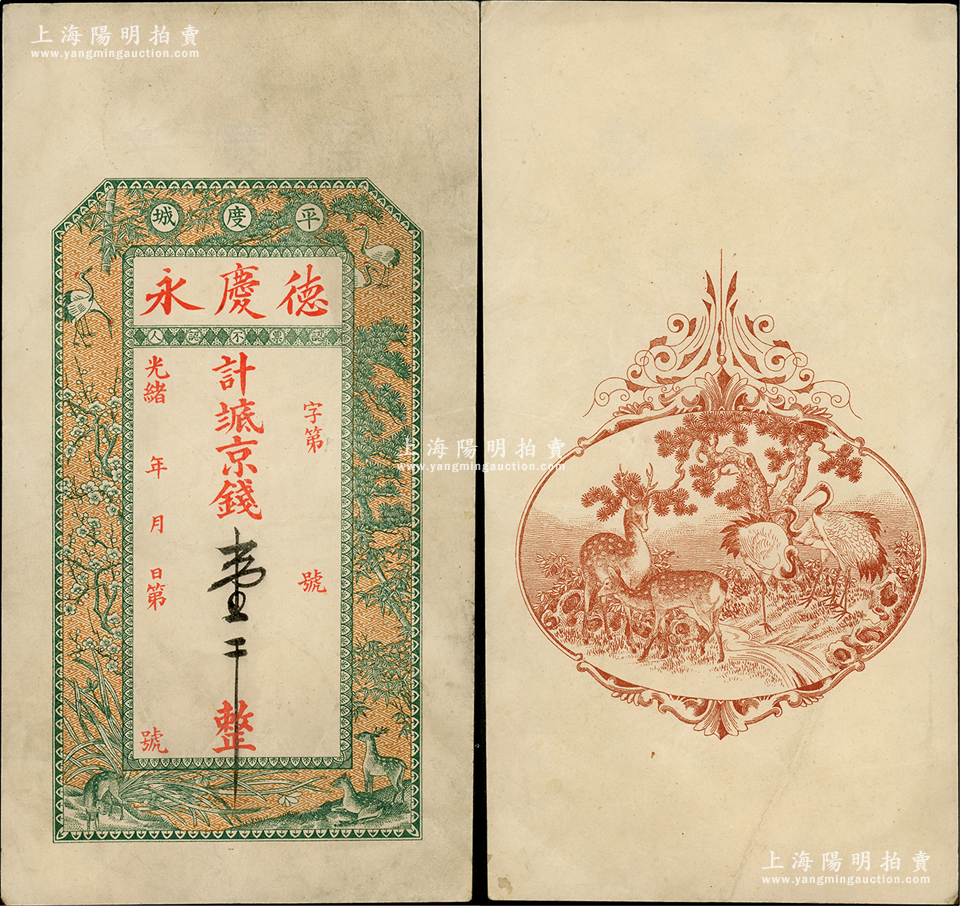 上海陽明拍賣
www.yangmingauction.com
平度城
德慶永
認票不認人
字第 號
計㡳京錢壹千整
光緒 年 月 日第 號
上海陽明拍賣
www.yangmingauction.com
上海陽明拍賣
www.yangmingauction.com